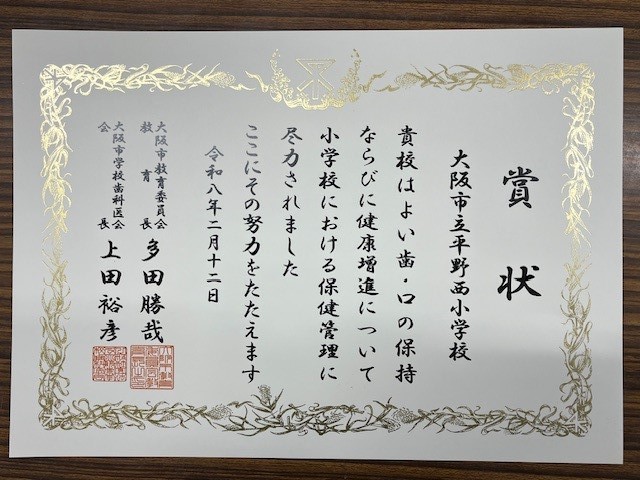 賞状
大阪市立平野西小学校
貴校はよい歯・口の保持
ならびに健康増進について
小学校における保健管理に
尽力されました
ここにその努力をたたえます
令和八年二月十二日
大阪市教育委員会
教育長 多田勝哉
大阪市学校歯科医会
会長 上田裕彦